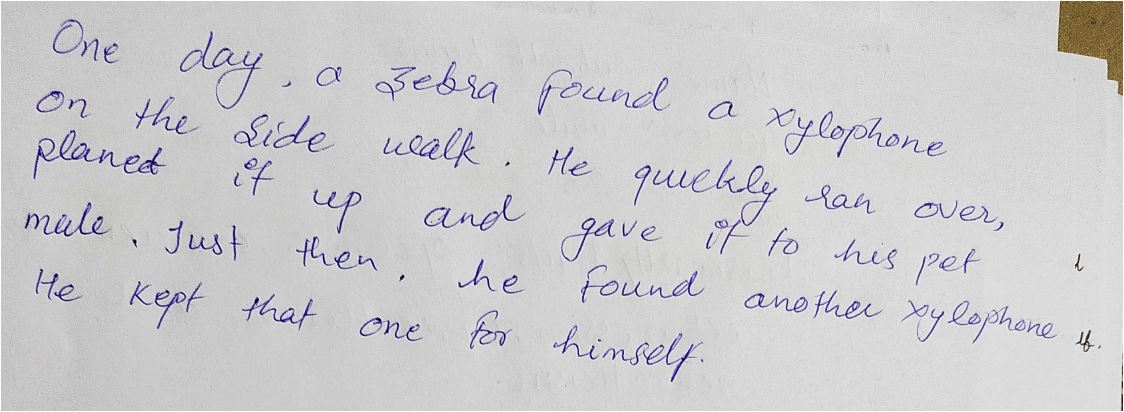 One day, a zebra found a xylophone
on the side walk. He quickly ran over,
planet it up and gave it to his pet
male. Just then, he found another xylophone
He kept that one for himself.